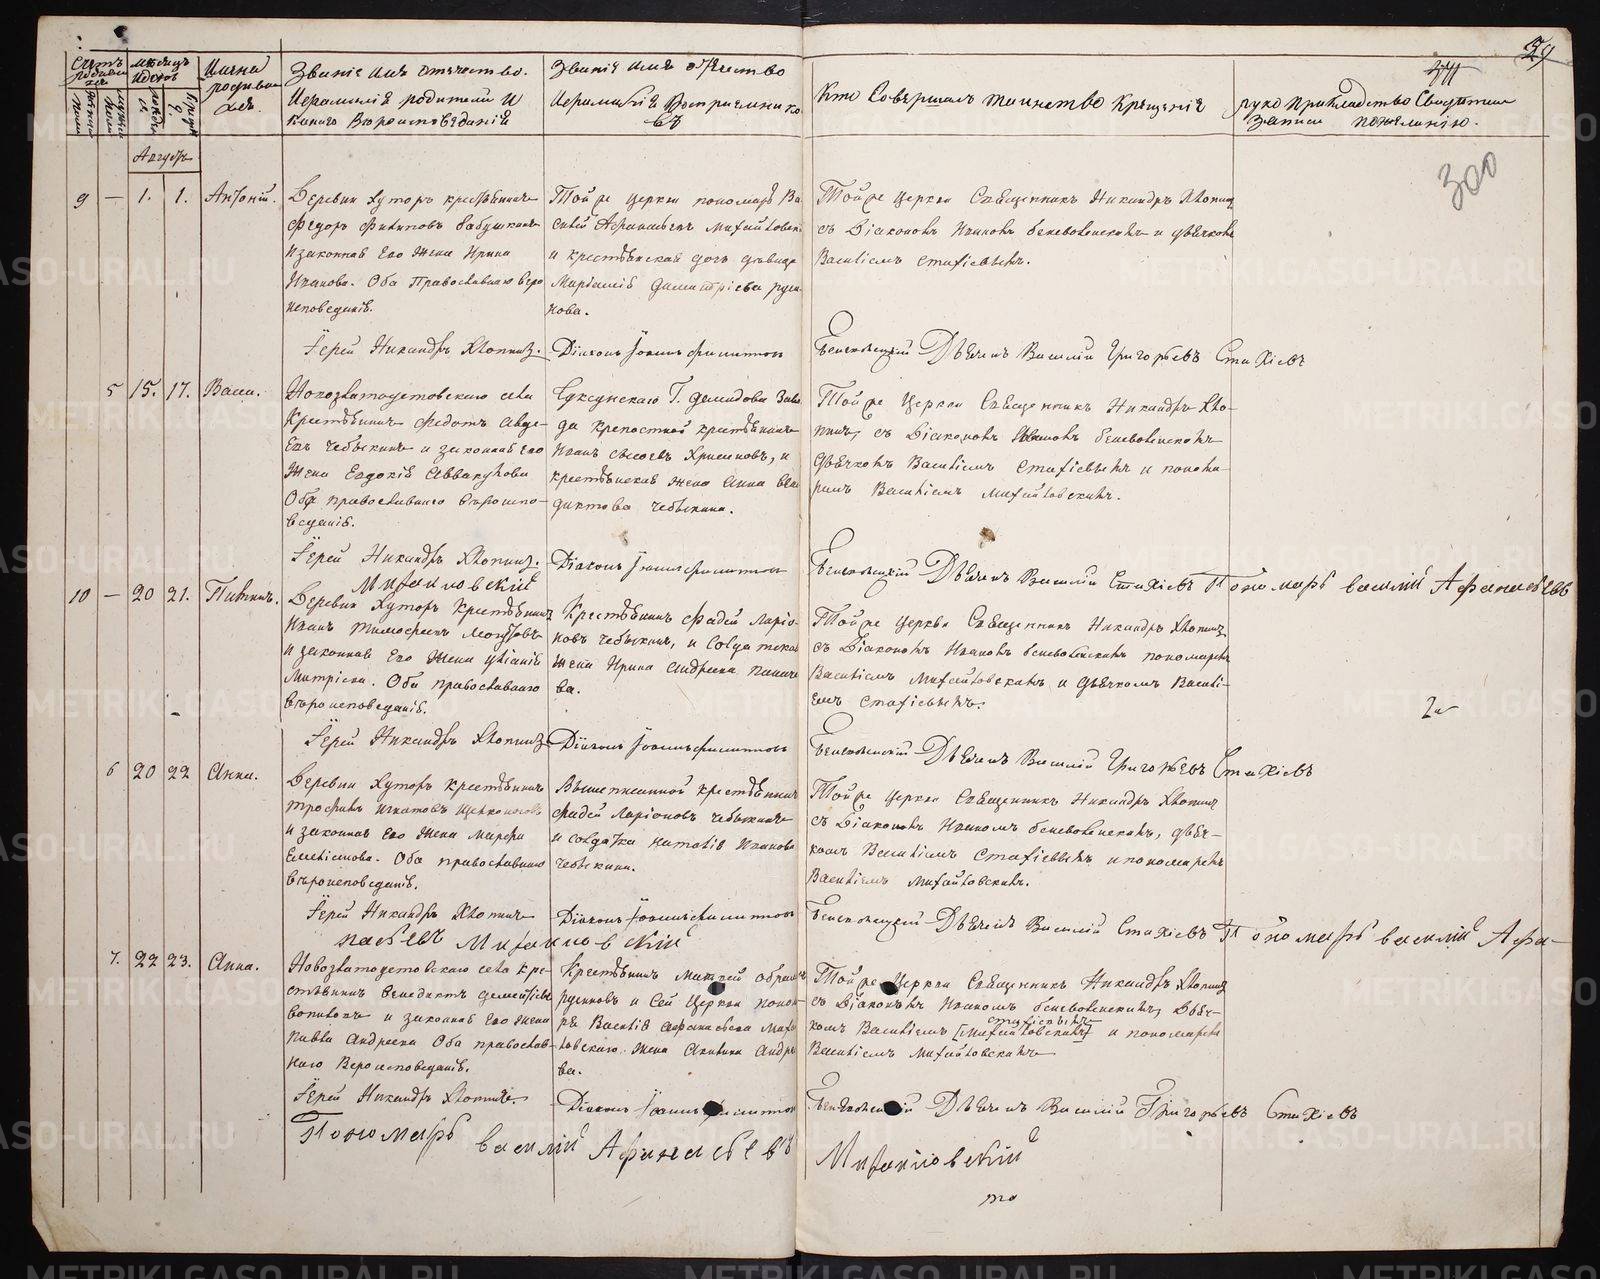 29
371
300
Счетъ родившихся
Мѣсяцъ и день
Имена родившихся
Званіе имя отчество
и фамилія родителей и
какого вѣроисповѣданія
Званіе имя отчество
и фамилія восприемниковъ
Кто совершалъ таинство крещенія
рукоприкладство свидѣтелей
записи по желанію.
мужеска
женска
рожденія
крещенія
Августъ
9 — 1. 1. Антоній.
Деревни Хуторъ крестьянинъ
Федоръ Филиповъ Бабушкинъ
и законная его жена Ирина
Иванова. Оба Православнаго веро
исповеданія.
Той же церкви пономарь Ва
силій Афанасьевъ Михайловскій
и крестьянская дочь девица
Димитріева
Той же церкви Священникъ Никандръ Хлопинъ
съ Діакономъ Иваномъ Беневоленскимъ и дьячкомъ
Василіемъ Стахіевымъ.
Іерей Никандръ Хлопинъ. Діаконъ Іоаннъ Филиппов
Беневоленскій Дьячекъ Василій Григорьевъ Стахіевъ
5 15. 17. Васса.
Новозлатоустовскаго села
Крестьянинъ Федотъ Авде
евъ Чебыкинъ и законная его
жена Евдокія Аввакумова
Оба православнаго вѣроиспо-
веданія.
Суксунскаго Г. Демидова Заво
да крепостной крестьянинъ
Иванъ Хрисановъ, и
крестьянская жена Анна Вене
диктова Чебыкина.
Той же Церкви Священникъ Никандръ Хло-
пинъ, съ Діакономъ Иваномъ Беневоленскимъ
Дьячкомъ Василіемъ Стахіевымъ и понома-
ремъ Василіемъ Михайловскимъ.
Іерей Никандръ Хлопинъ. Діаконъ Іоаннъ Филиппов
Беневоленскій Дьячекъ Василій Стахіевъ Пономарь василій Афанасьевъ
Михайловскій
10 — 20 21. Питиримъ.
Деревни Хуторъ крестьянинъ
Иванъ Тимофеевъ
и законная его жена Уліанія
Митріева. Оба православнаго
вѣроисповеданія.
Крестьянинъ Фадей Ларіо-
новъ Чебыкинъ, и Солдатская
жена Ирина Андреева
Той же церкви Священникъ Никандръ Хлопинъ
съ Діакономъ Иваномъ Беневоленскимъ пономаремъ
Василіемъ Михайловскимъ и Дьячкомъ Василі-
емъ Стахіевымъ.
Іерей Никандръ Хлопинъ Діаконъ Іоаннъ Филиппов
Беневоленскій Дьячекъ Василій Григорьевъ Стахіевъ
6 20 22 Анна.
Деревни Хуторъ крестьянинъ
Трофимъ Игнатовъ
и законная его жена Марфа
Емеліянова. Оба православнаго
вѣроисповеданія.
Вышеписанной крестьянинъ
Фадей Ларіоновъ Чебыкинъ
и солдатка Наталія Иванова
Чебыкина.
Той же церкви Священникъ Никандръ Хлопинъ
съ Діакономъ Иваномъ Беневоленскимъ, дьяч-
комъ Василіемъ Стахіевымъ и пономаремъ
Василіемъ Михайловскимъ.
Іерей Никандръ Хлопинъ Діаконъ Іоаннъ Филиппов
Беневоленскій Дьячекъ Василій Стахіевъ Пономарь василій Афа-
насьевъ Михайловскій
7. 22 23. Анна.
Новозлатоустовскаго села кре-
стьянинъ Венедиктъ Дементіевъ
и законная его жена
Павла Андреева Оба православ-
наго Вероисповеданія.
Крестьянинъ
и сей Церкви понома
ря Василія Афанасьева Михай
ловскаго жена Акилина Андре
ва.
Той же Церкви Священникъ Никандръ Хлопинъ
съ Діакономъ Иваномъ Беневоленскимъ, Дьяч-
стахіевымъ
комъ Василіемъ [Михайловскимъ] и пономаремъ
Василіемъ Михайловскимъ
Іерей Никандръ Хлопинъ. Діаконъ Іоаннъ Филиппов
Беневоленскій Дьячекъ Василій Григорьевъ Стахіевъ
Пономарь василій Афанасьевъ Михайловскій